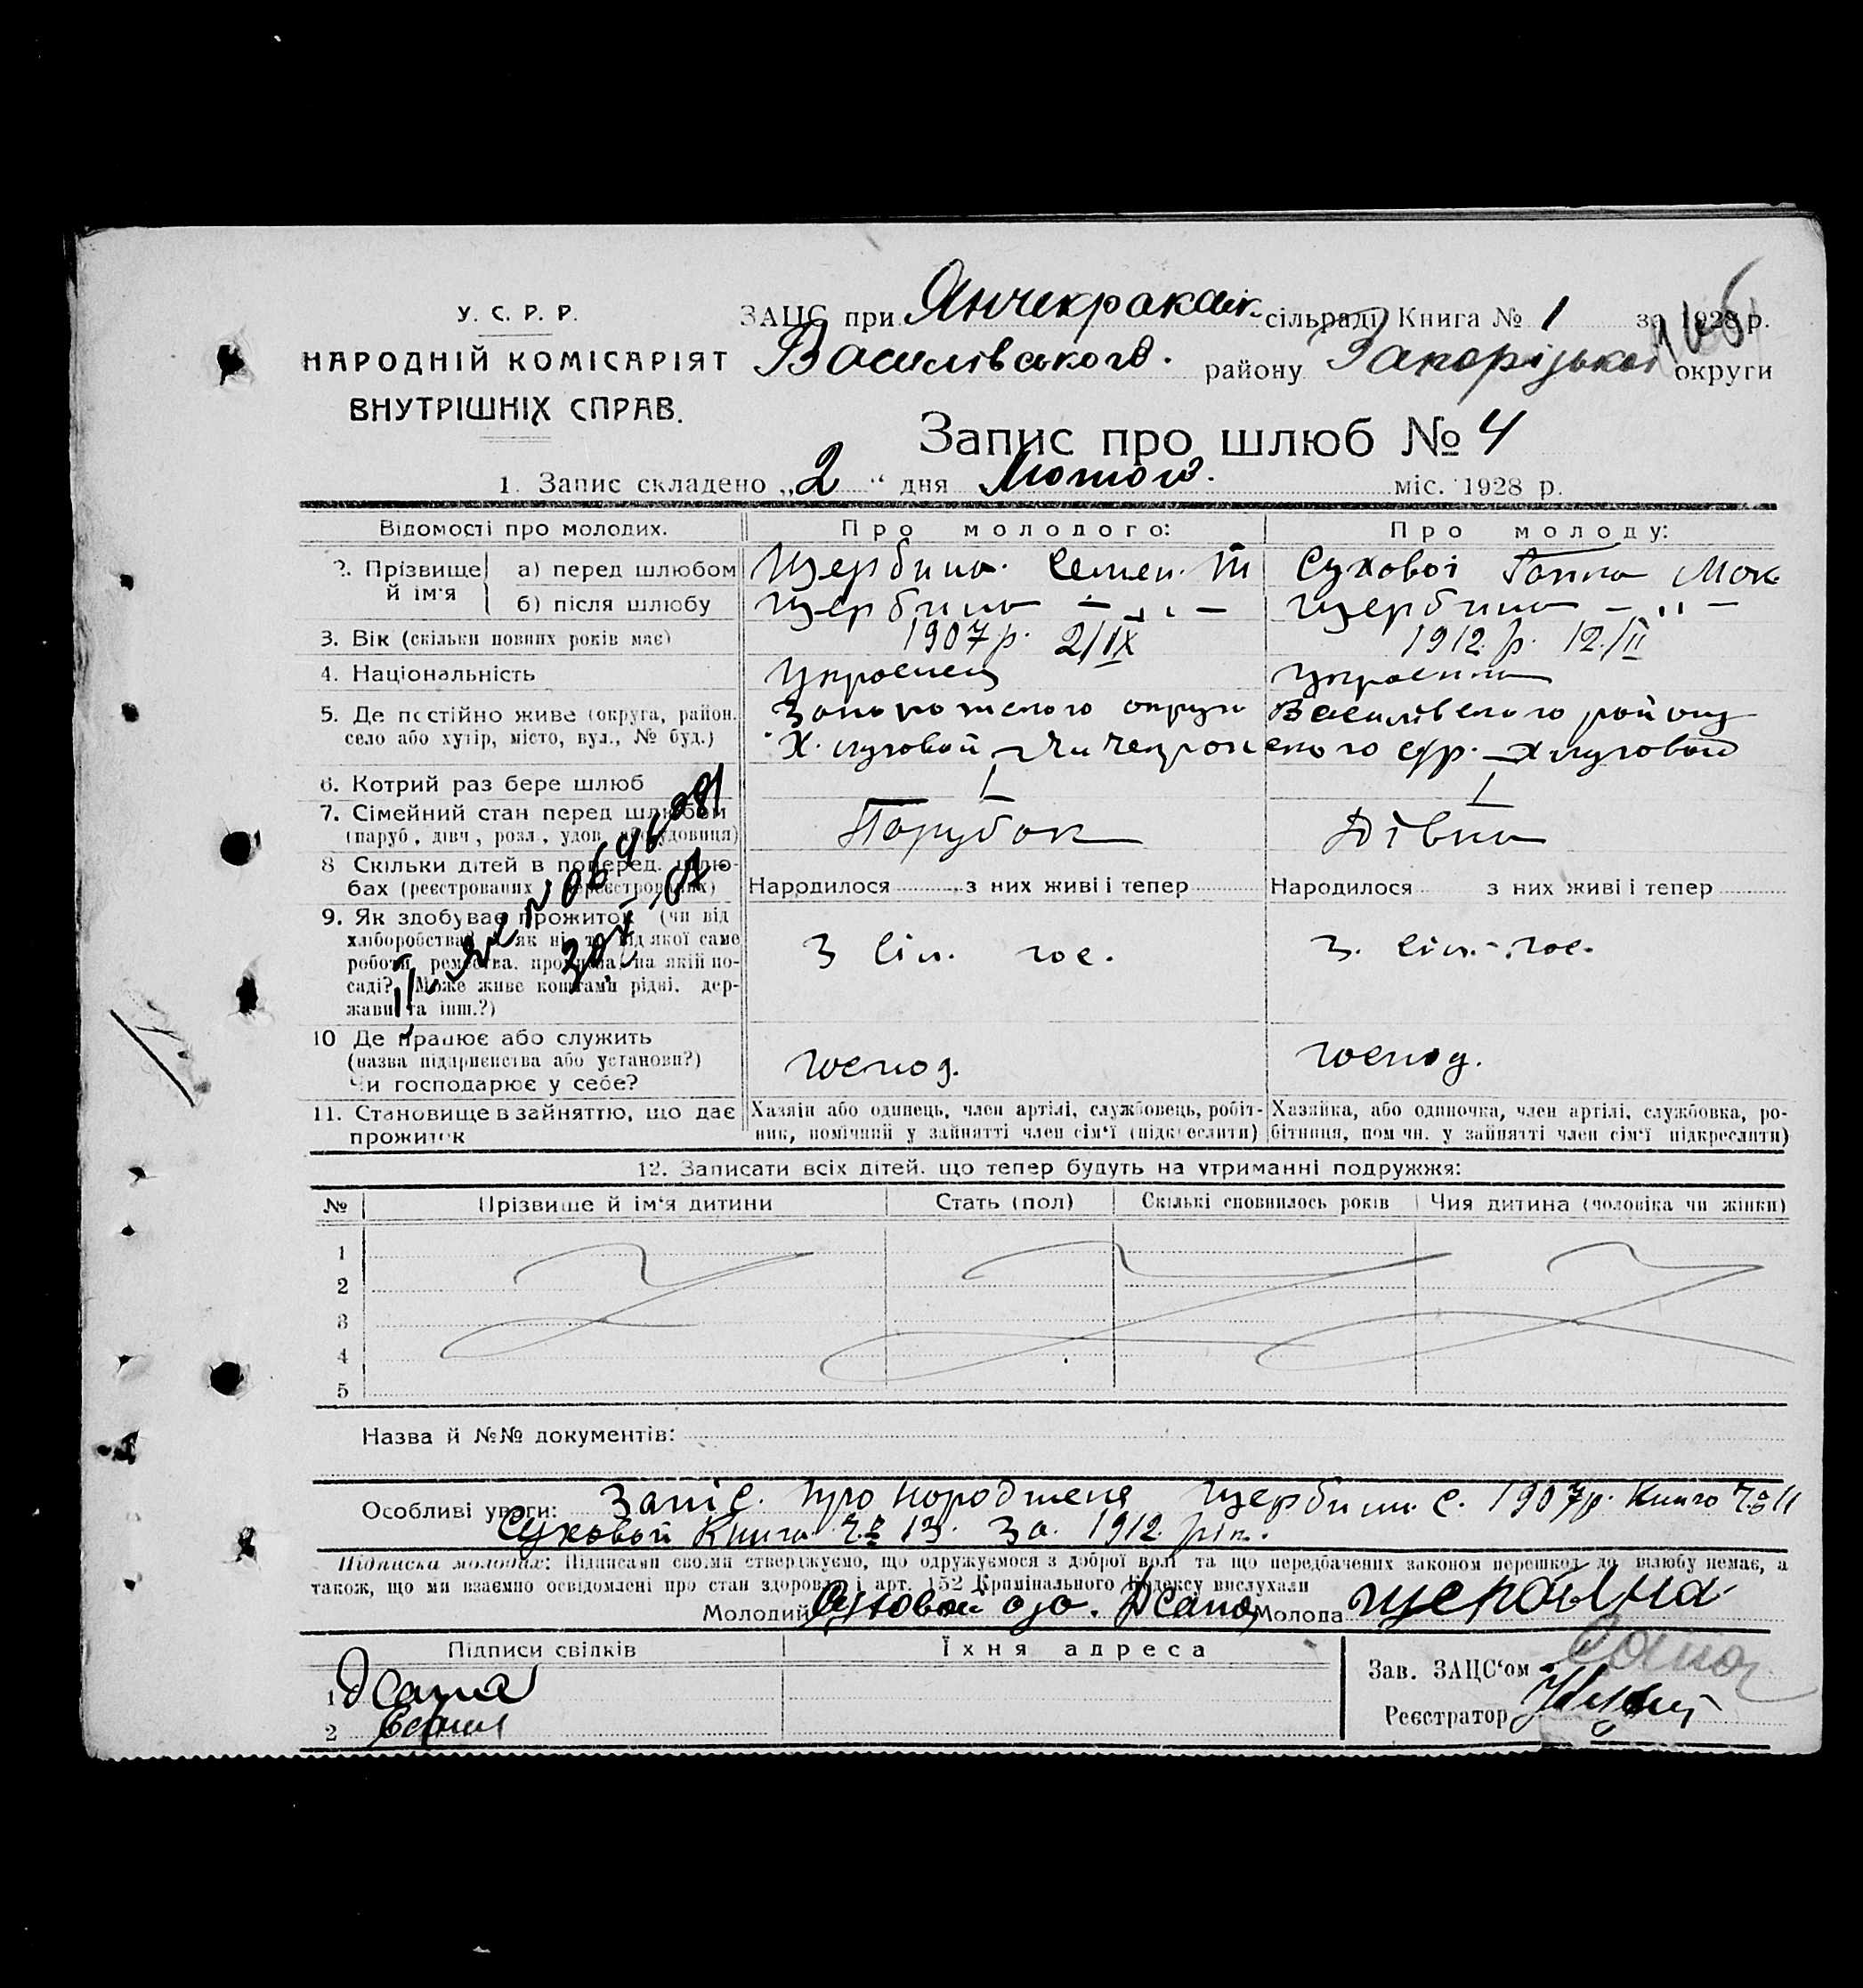 У. С. Р. Р.
НАРОДНІЙ КОМІСАРІЯТ
ВНУТРІШНІХ СПРАВ.
ЗАЦС при Янчекракськ. сільраді Книга № 1 за 1928 р.
Василівського району Запорізької округи
Запис про шлюб № 4
1. Запис складено „2“ дня Лютого. міс. 1928 р.
Відомості про молодих. Про молодого: Про молоду:
2. Прізвище й ім'я
а) перед шлюбом Щербина Семен Суховой Ганна Мок
б) після шлюбу Щербина — „ — Щербина — „ —
3. Вік (скільки повних років має) 1907 р. 2/IX 1912 р. 12/II
4. Національність Украєнец Украєнка
5. Де постійно живе (округа, район, Василівського району
село або хутір, місто, вул., № буд.) Х. луговой х луговой
6. Котрий раз бере шлюб 1 1
7. Сімейний стан перед шлюбом Парубок Дівка
(паруб., дівч., розл., удов. або удовиця)
8 Скільки дітей в поперед. шлю-
бах (реєстрованих і нереєстрованих) Народилося з них живі і тепер Народилося з них живі і тепер
9. Як здобуває прожиток (чи від
хліборобства? як ні, то від якої саме З сіл. гос. З. сіл.-гос.
роботи, ремества, промисла, на якій по-
саді? Може живе коштами рідні, дер-
жави та інш.?)
10 Де працює або служить
(назва підприємства або установи?) господ. господ.
Чи господарює у себе?
11. Становище в зайняттю, що дає Хазяїн або одинець, член артілі, службовець, робіт- Хазяйка, або одиночка, член артілі, службовка, ро-
прожиток ник, помічний у зайнятті член сім'ї (підкреслити) бітниця, помічн. у зайнятті член сім'ї підкреслити)
12. Записати всіх дітей, що тепер будуть на утриманні подружжя:
№ Прізвище й ім'я дитини Стать (пол) Скількі сповнилось років Чия дитина (чоловіка чи жінки)
1
2
3
4
5
Назва й №№ документів:
Особливі уваги: Запіс. про народженя Щербини С. 1907 р. Книга 11
Суховой Книга 13. За. 1912 рік.
Підписка молодих: Підписами своїми стверджуємо, що одружуємося з доброї волі та що передбачених законом перешкод до шлюбу немає, а
також, що ми взаємно освідомлені про стан здоровля і арт. 152 Кримінального Кодексу вислухали
Молодий Суховой Молода Щербина
Підписи свідків Їхня адреса
Зав. ЗАЦС'ом
1
Реєстратор
2